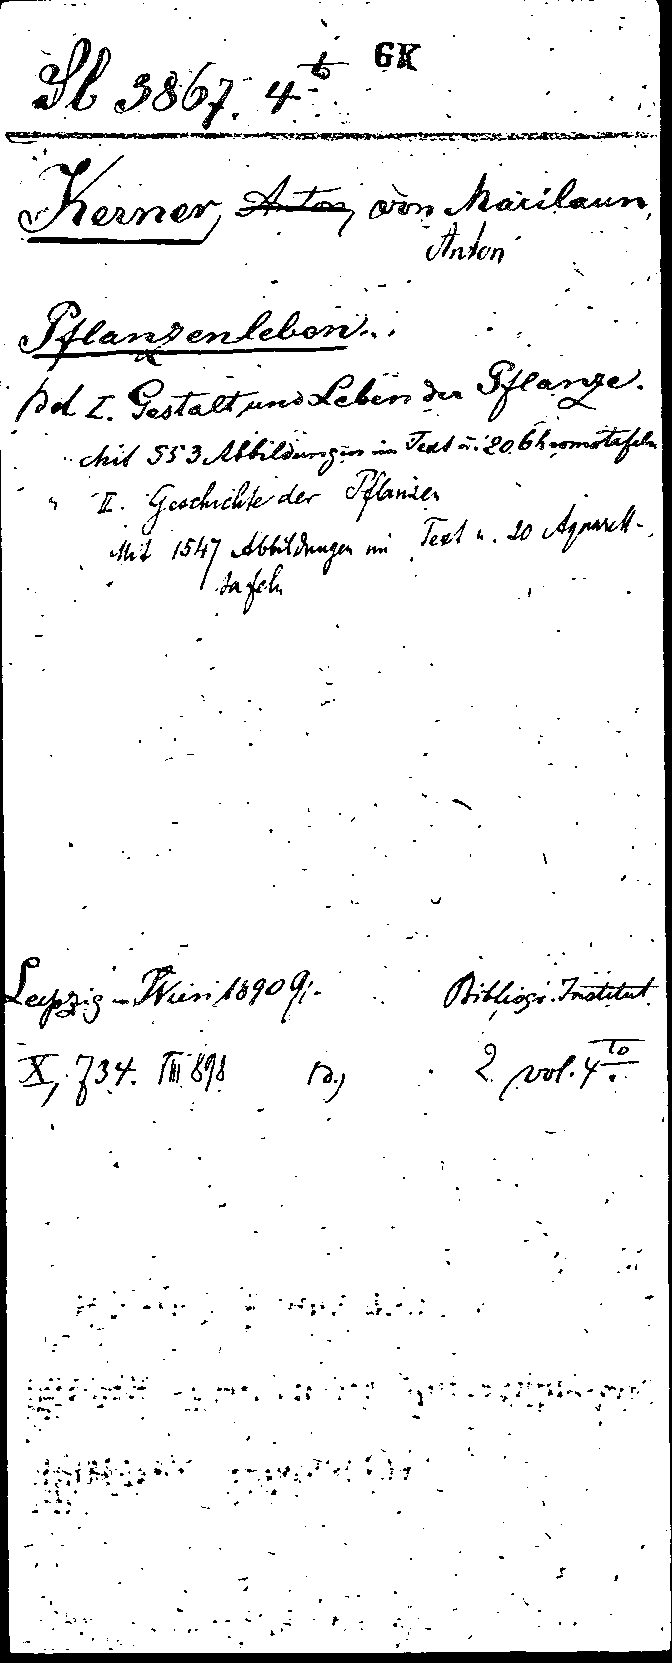 Sl 3867. 4to GK
Kerner, Anton, von Marilaun,
Anton
Pflanzenleben..
Bd I. Gestalt und Leben der Pflanze.
Mit 553 Abbildungen im Text u. 20 Chromotafeln
" II. Geschichte der Pflanzen
Mit 1547 Abbildungen im Text u. 20 Aquarell-
tafeln
Leipzig - Wien 1890 91. Bibliogr. Institut
X, 734. VIII 898 2 vol. 4to